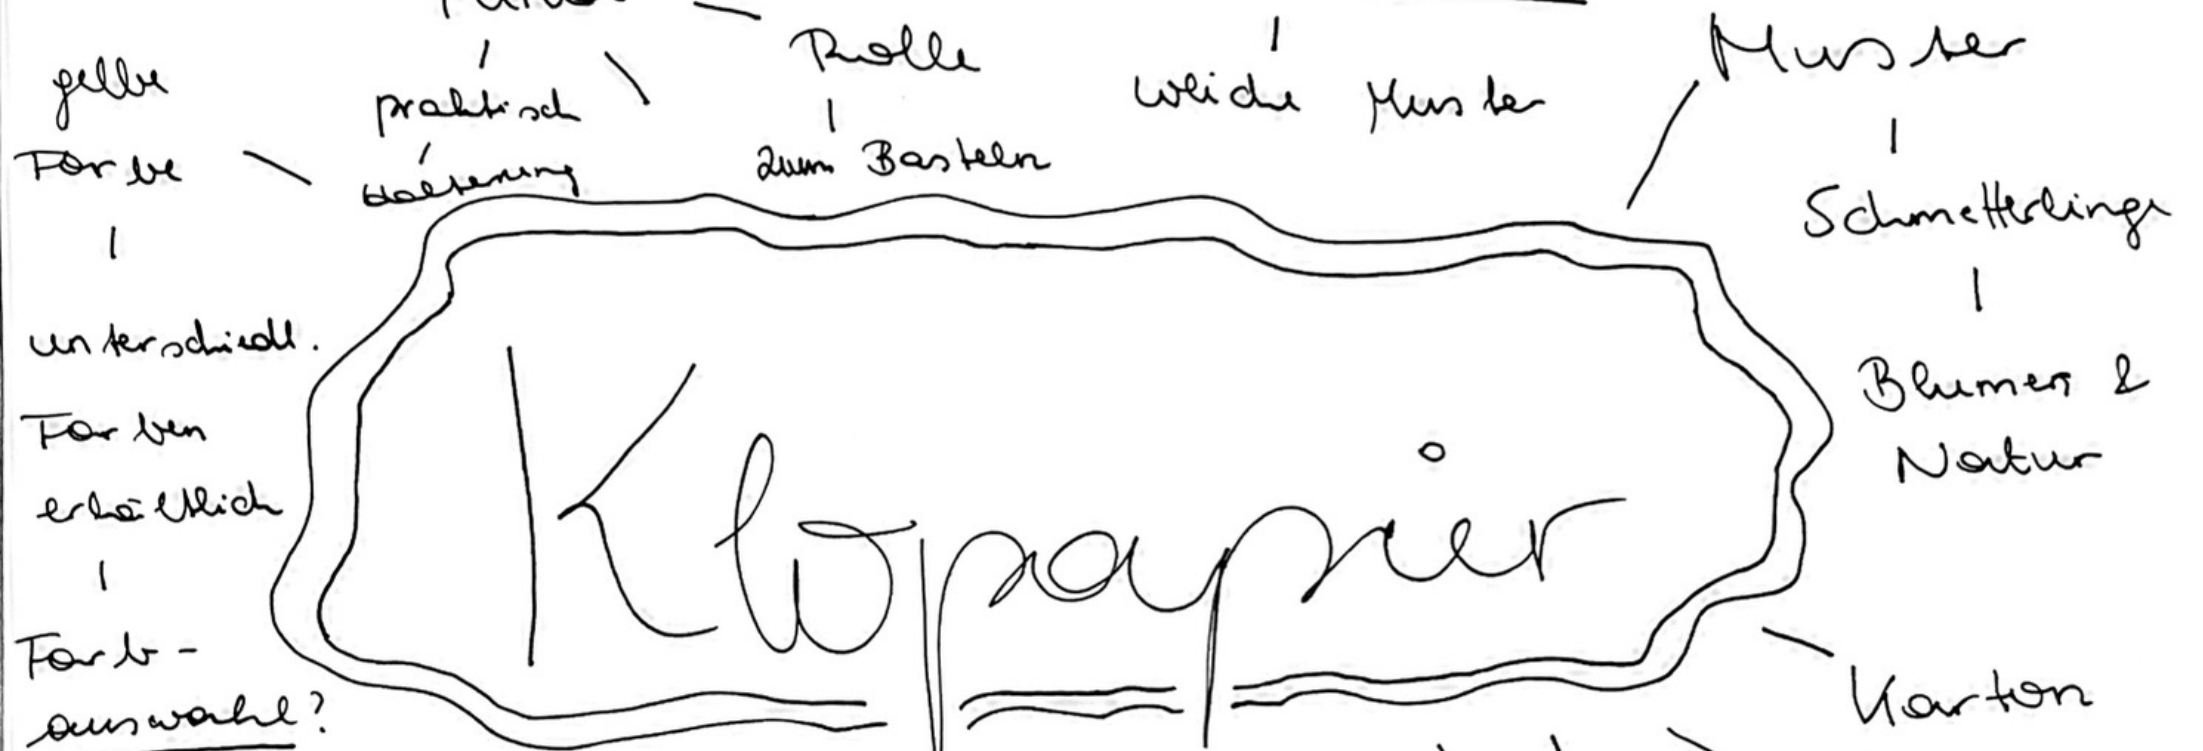 gelbe
Farbe
unterschiedl.
Farben
erhältlich
Farb-
auswahl?
praktisch
Rolle
zum Basteln
weiche Muster
Muster
Schmetterlinge
Blumen &
Natur
Klopapier
Karton